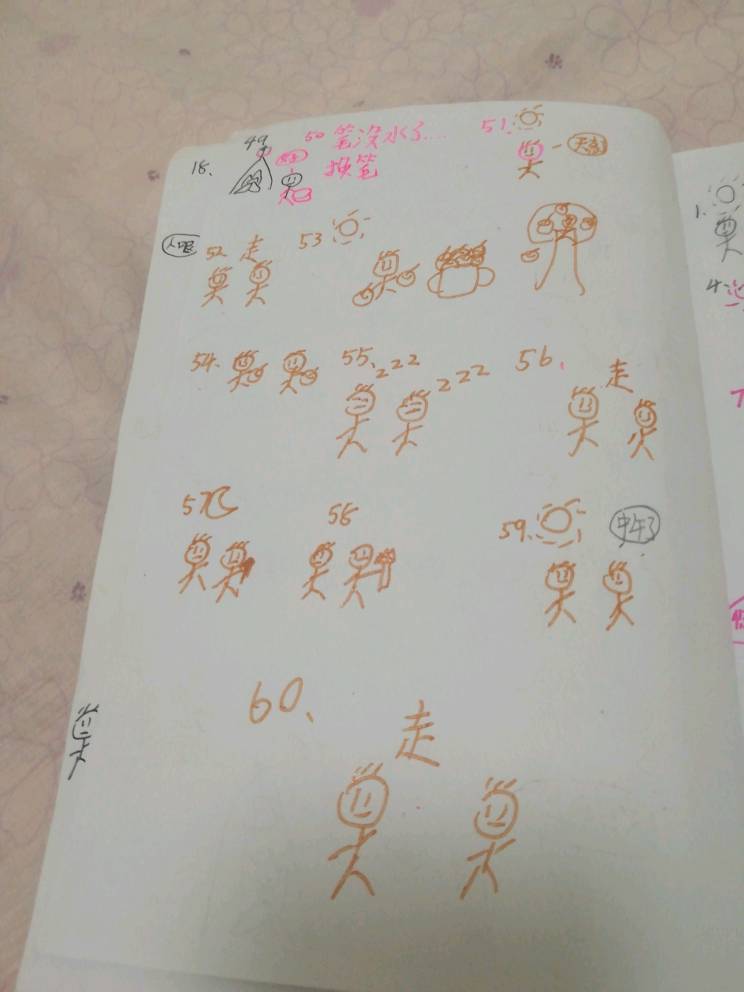 18、
49
50 笔没水了...
换笔
51、
天亮
人呢
52、走
53
54、
55、zzz
zzz
56、
走
57
58
59、
中午了
60、
走
1、
4、